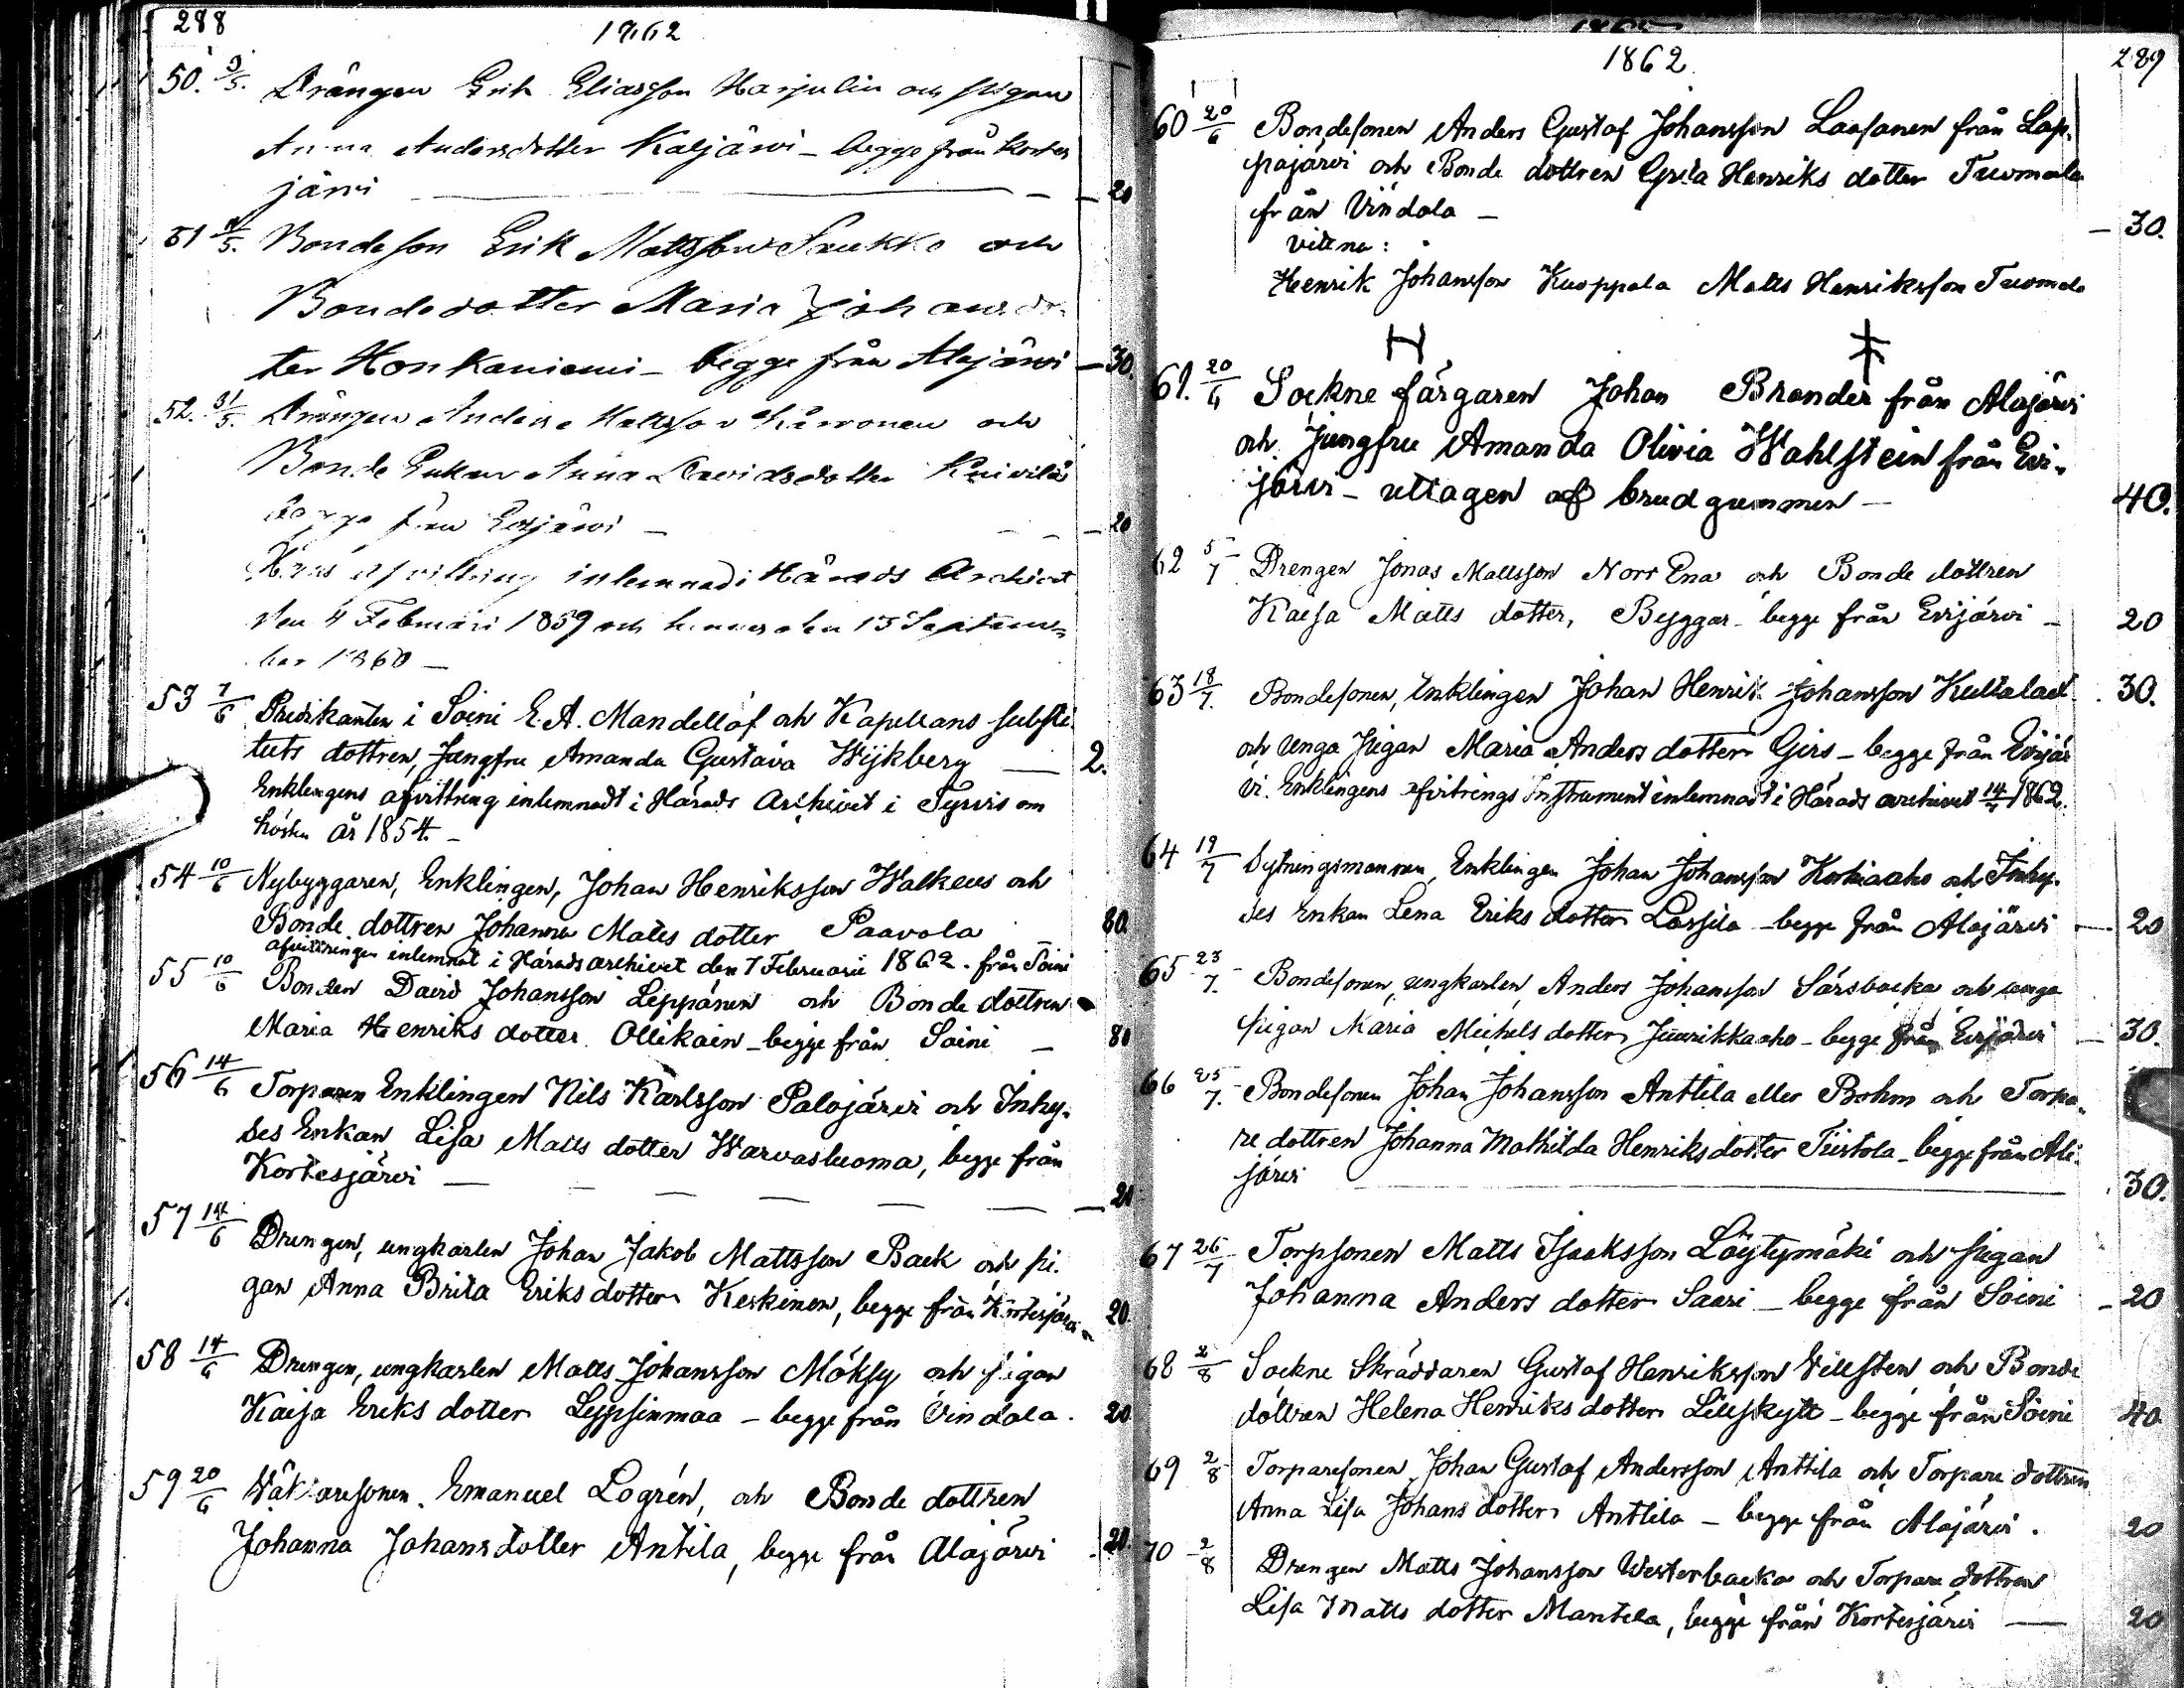 288
1862
50. 3/5. Drängen Erik Eliasson Harjulin och pigan
Anna Andersdotter Kaljärvi - begge från Kortes
järvi — 20
51 11/5. Bondeson Erik Mattsson Saukko och
Bondedotter Maria Johansdot
ter Honkaniemi - begge från Alajärvi — 30.
52. 31/5. Drängen Anders Mattsson och
Bonde Enkan Anna Davidsdotter
begge från Evijärvi — 20
Hans afvittring inlemnad i Härads Archivet
den 4 Februari 1859 och hennes den 13 Septem-
ber 1860 —
53 7/6 Predikanten i Soini E. A. Mandellöf och Kapellans substi-
tuts dottren, Jungfru Amanda Gustava Wijkberg — 2.
Enklingens afvittring inlemnadt i Härads Archivet i Tyrvis om
hösten år 1854. —
54 10/6 Nybyggaren, Enklingen, Johan Henriksson Walkeus och
Bonde dottren Johanna Matts dotter Paavola 80
afvittringen inlemnat i Häradsarchivet den 7 Februarii 1862. från Soini
55 10/6 Bonden David Johansson Leppänen och Bonde dottren
Maria Henriks dotter Ollikain - begge från Soini — 80
56 14/6 Torparen Enklingen Nils Karlsson Palojärvi och Inhy-
ses Enkan Lisa Matts dotter Warvasluoma, begge från
Kortesjärvi — 20
57 14/6 Drengen, ungkarlen Johan Jakob Mattsson Back och pi-
gan Anna Brita Eriks dotter Keskinen, begge från Kortesjärvi 20.
58 14/6 Drengen, ungkarlen Matts Johansson Möksy och pigan
Kaisa Eriks dotter Leppsinmaa - begge från Vindala. 20
59 20/6 Emanuel Logrén, och Bonde dottren
Johanna Johansdotter Antila, begge från Alajärvi 20.
1862
289
60 20/6 Bondesonen Anders Gustaf Johansson Laasanen från Lap-
pajärvi och Bonde dottren Greta Henriks dotter Tuomala
från Vindala — 30.
vittna:
Henrik Johansson Kuoppala Matts Henriksson Tuomala
61. 20/6 Sockne färgaren Johan Brander från Alajärvi
och Jungfru Amanda Olivia Wahlstein från Evi-
järvi - uttagen af brudgummen — 40.
62 5/7 Drengen Jonas Mattsson Norr Ena och Bonde dottren
Kaisa Matts dotter, Byggar - begge från Evijärvi — 20
63 18/7. Bondesonen, Enklingen Johan Henrik Johansson Kultalad 30.
och unga Pigan Maria Anders dotter Girs - begge från Evijär
vi. Enklingens afvitrings Instrument inlemnadt i Härads archivet 14/7 1862.
64 19/7 Sytningsmannen, Enklingen Johan Johansson Korkiaaho och Inhy-
ses Enkan Lena Eriks dotter Lassila - begge från Alajärvi — 20
65 23/7. Bondesonen, ungkarlen, Anders Johansson Särsbacka och unga
Pigan Maria Michels dotter Juurikkaaho - begge från Evijärvi — 30.
66 25/7. Bondesonen Johan Johansson Anttila eller Bohm och Torpa-
re dottren Johanna Mathilda Henriksdotter Tiistola - begge från Ala-
järvi — 30.
67 26/7 Torpsonen Matts Isaksson Löytymäki och Pigan
Johanna Anders dotter Saari - begge från Soini — 20
68 2/8 Sockne Skräddaren Gustaf Henriksson Villsten och Bonde
dottren Helena Henriks dotter Lillskytt - begge från Soini 40
69 2/8 Torparesonen Johan Gustaf Andersson Anttila och Torpare dottren
Anna Lisa Johans dotter Anttila - begge från Alajärvi. 20
70 2/8 Drengen Matts Johansson Westerbacka och Torpare dottren
Lisa Matts dotter Mantela, begge från Kortesjärvi — 20